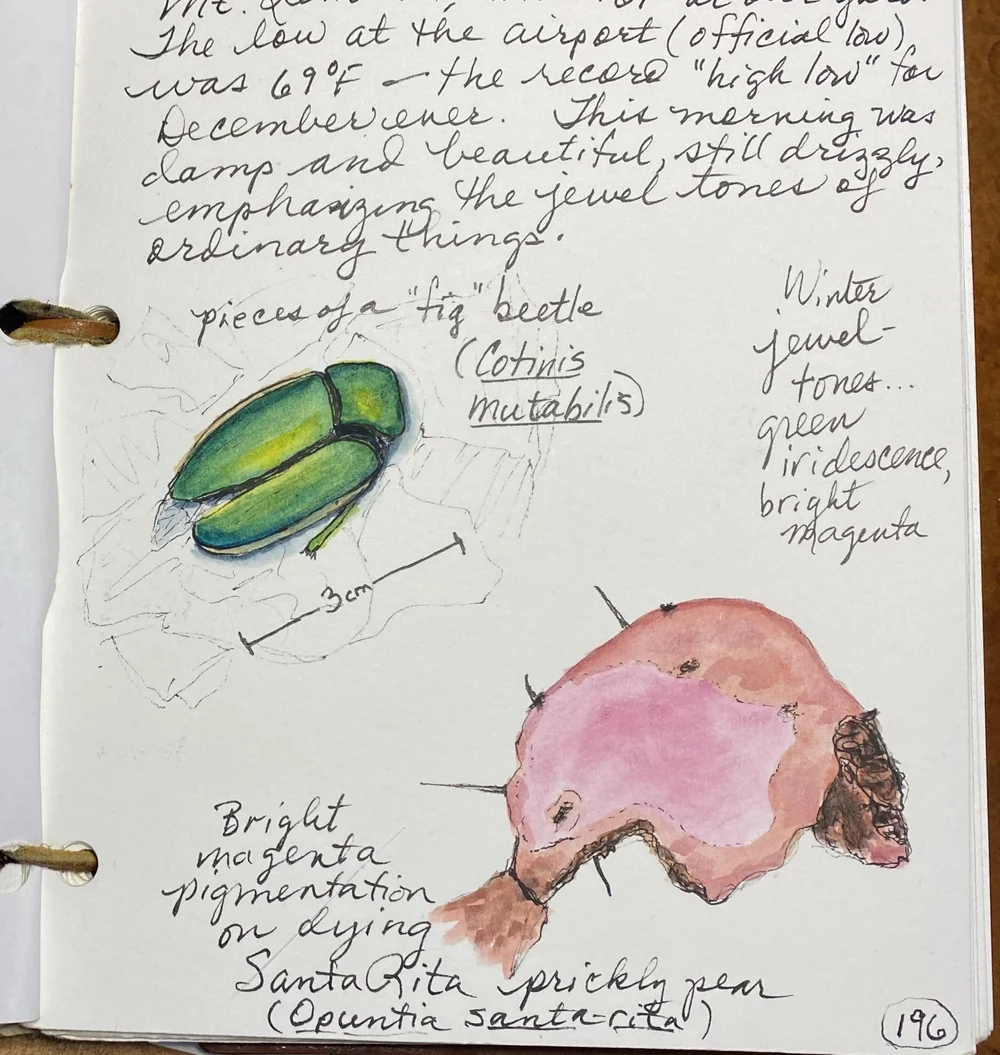 Mt.
The low at the airport (official low)
was 69°F — the record "high low" for
December ever. This morning was
damp and beautiful, still drizzly,
emphasizing the jewel tones of
ordinary things.
pieces of a "fig" beetle
(Cotinis
mutabilis)
Winter
jewel-
tones...
green
iridescence,
bright
magenta
3 cm
Bright
magenta
pigmentation
on dying
Santa Rita prickly pear
(Opuntia santa-rita)
196